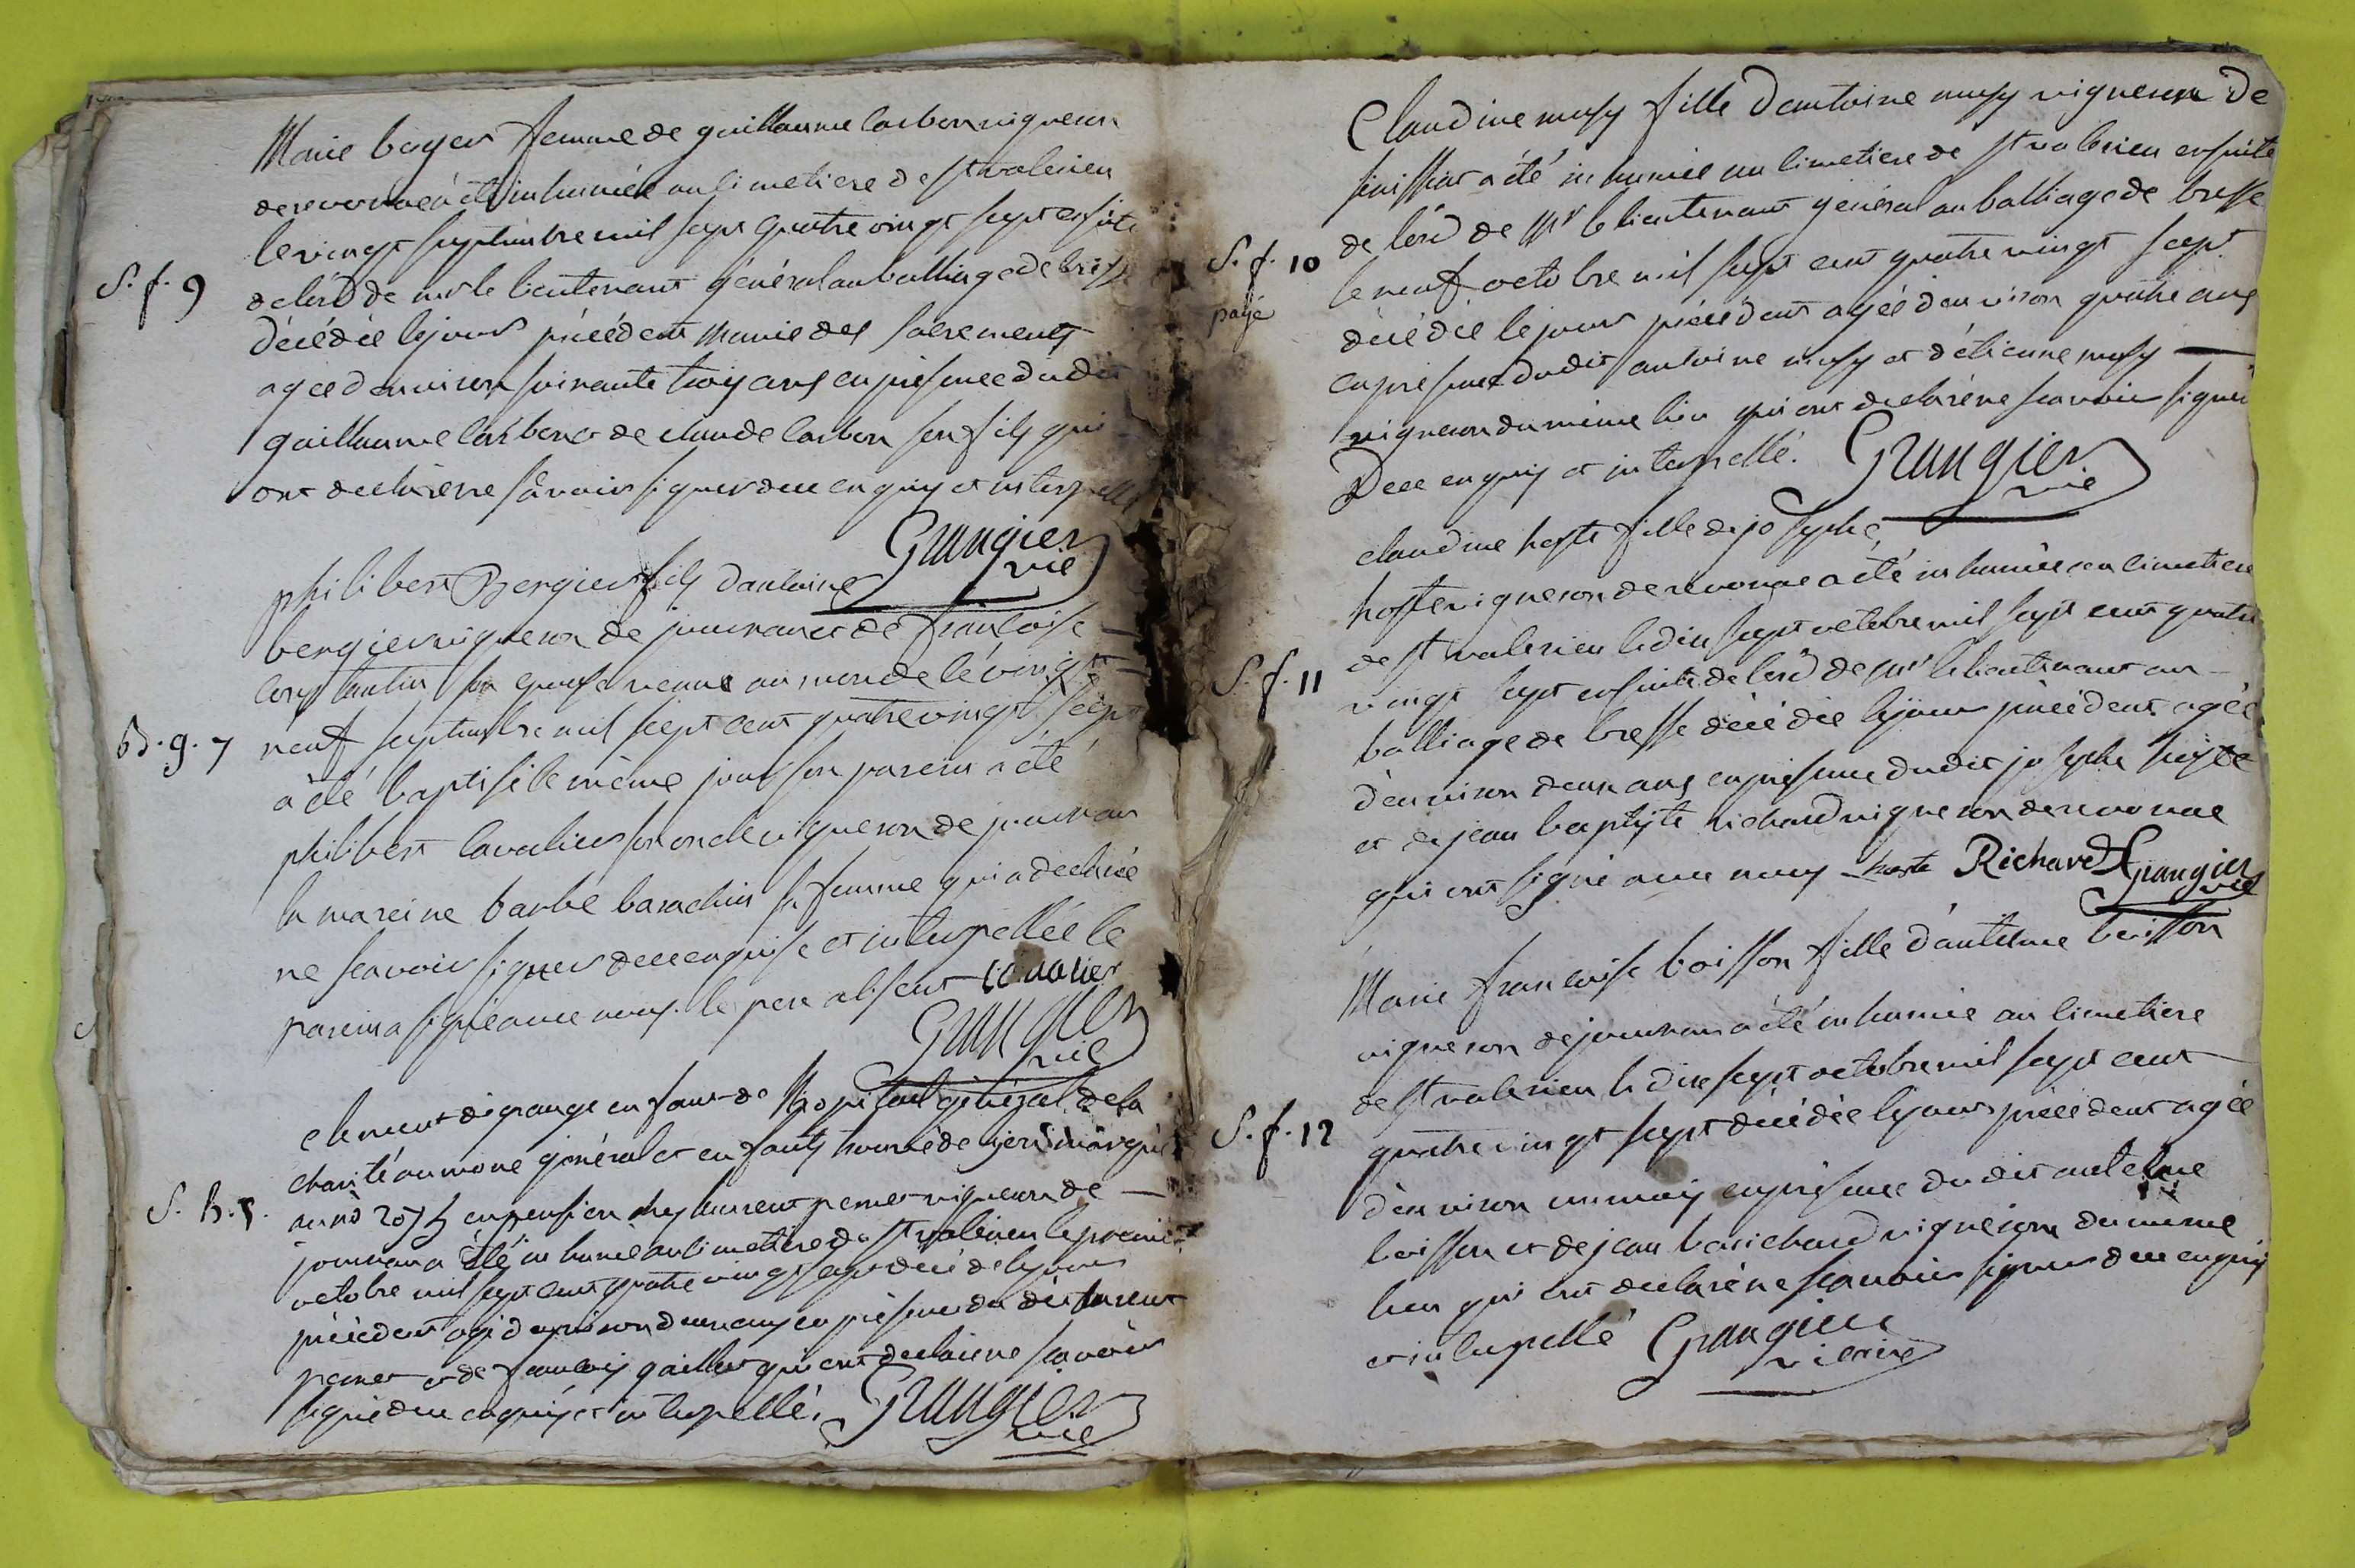 Marie boyer femme de guillaume carbon vigneron
de revonna a été inhumée au cimetiere de st valerien
le vingt septembre mil sept quatre vingt sept ensuite
S. f. 9
de l'ord de mr le lieutenant général au balliage de bresse
décédée le jour précédent munie des sacrements
agée d'environ soixante trois ans en presence dudit
guillaume carbon et de claude carbon son fils qui
ont declaré ne sçavoir signer de ce enquis et interpellé
Grangier vic
philibert Bergier fils d'antoine
bergier vigneron de journans et de françoise
constantin son epouse venu au monde le vingt
B. g. 7
neuf septembre mil sept cent quatre vingt sept
a été baptisé le même jour son parein a été
philibert cavalier son oncle vigneron de journans
la mareine barbe barachin sa femme qui a declaré
ne scavoir signer de ce enquise et interpellée le
parein a signé avec nous. le pere absent Cavalier
Grangier vic
clement degrange enfant de l'hopital général de la
charité aumone général et enfants trouvé de
S. h. 5.
au no en pension chez laurent perret vigneron de
journans a été inhumé au cimetiere de st valerien le premier
octobre mil sept cent quatre vingt sept décédé le jour
précédent agé d'environ deux ans en présence du dit laurent
perret et de françois gaillet qui ont declaré ne scavoir
signé de ce enquis et interpellé. Grangier vic
Claudine musy fille d'antoine musy vigneron de
a été inhumée au cimetiere de st valerien ensuite
S. f. 10
payé
de l'ord de mr le lieutenant général au balliage de bresse
le neuf octobre mil sept cent quatre vingt sept
décédée le jour précédent agée d'environ quatre ans
en presence dudit antoine musy et d'étienne musy
vigneron du même lieu qui ont declaré ne scavoir signer
De ce enquis et interpellé. Grangier vic
claudine hoste fille de josephe
hoste vigneron de revonna a été inhumée au cimetiere
de st valerien le dix sept octobre mil sept cent quatre
S. f. 11
vingt sept ensuite de l'ord de mr le lieutenant au
balliage de bresse décédée le jour précédent agée
d'environ deux ans en présence dudit josephe hoste
et de jean baptiste richard vigneron de revonna
qui ont signé avec nous hoste Richard Grangier vic
Marie françoise boisson fille d'antelme boisson
vigneron de journans a été inhumée au cimetiere
de st valerien le dix sept octobre mil sept cent
S. f. 12
quatre vingt sept décédée le jour précédent agée
d'environ un mois en présence du dit antelme
boisson et de jean vigneron du même
lieu qui ont declaré ne scavoir signer de ce enquis
et interpellé Grangier
vicaire